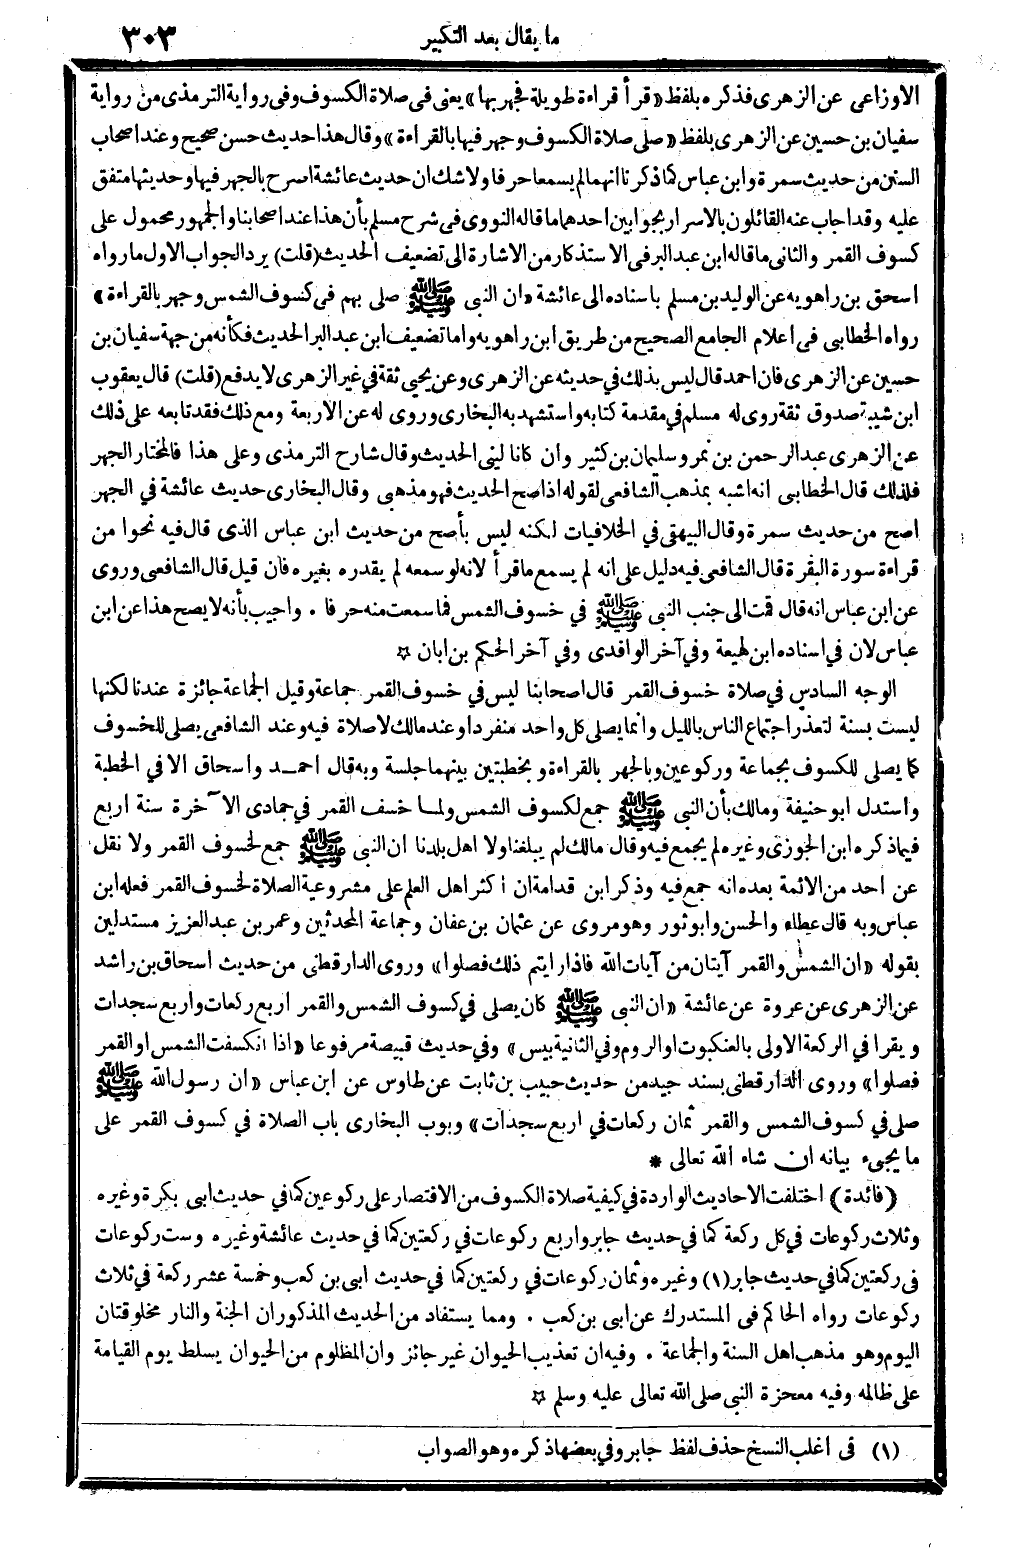 ما يقال بعد التكبير ٣٠٣
الاوزاعى عن الزهرى فذكره بلفظ «قرأ قراءة طويلة فجهر بها» يعنى فى صلاة الكسوف وفى رواية الترمذى من رواية
سفيان بن حسين عن الزهرى بلفظ «صلى صلاة الكسوف وجهر فيها بالقراءة» وقال هذا حديث حسن صحيح وعند اصحاب
السنن من حديث سمرة وابن عباس كما ذكرنا انهما لم يسمعا حرفا ولا شك ان حديث عائشة اصرح بالجهر فيها وحديثها متفق
عليه وقد اجاب عنه القائلون بالاسرار بجوابين احدهما ما قاله النووى فى شرح مسلم بأن هذا عند اصحابنا والجمهور محمول على
كسوف القمر والثانى ما قاله ابن عبد البر فى الاستذكار من الاشارة الى تضعيف الحديث (قلت) يرد الجواب الاول ما رواه
اسحق بن راهويه عن الوليد بن مسلم باسناده الى عائشة «ان النبى ﷺ صلى بهم فى كسوف الشمس وجهر بالقراءة»
رواه الخطابى فى اعلام الجامع الصحيح من طريق ابن راهويه واما تضعيف ابن عبد البر الحديث فكأنه من جهة سفيان بن
حسين عن الزهرى فان احمد قال ليس بذلك في حديثه عن الزهرى وعن يحيى ثقة في غير الزهرى لا يدفع (قلت) قال يعقوب
ابن شيبة صدوق ثقة روى له مسلم في مقدمة كتابه واستشهد به البخارى وروى له عن الاربعة ومع ذلك فقد تابعه على ذلك
عن الزهرى عبد الرحمن بن نمر وسليمان بن كثير وان كانا لينى الحديث وقال شارح الترمذى وعلى هذا فالمختار الجهر
فلذلك قال الخطابى انه اشبه بمذهب الشافعى لقوله اذا صح الحديث فهو مذهبى وقال البخارى حديث عائشة في الجهر
اصح من حديث سمرة وقال البيهقى في الخلافيات لكنه ليس بأصح من حديث ابن عباس الذى قال فيه نحوا من
قراءة سورة البقرة قال الشافعى فيه دليل على انه لم يسمع ما قرأ لانه لو سمعه لم يقدره بغيره فان قيل قال الشافعى وروى
عن ابن عباس انه قال قمت الى جنب النبى ﷺ في خسوف الشمس فما سمعت منه حرفا . واجيب بأنه لا يصح هذا عن ابن
عباس لان في اسناده ابن لهيعة وفي آخر الواقدى وفي آخر الحكم بن ابان ☆
الوجه السادس في صلاة خسوف القمر قال اصحابنا ليس في خسوف القمر جماعة وقيل الجماعة جائزة عندنا لكنها
ليست بسنة لتعذر اجتماع الناس بالليل وانما يصلى كل واحد منفردا وعند مالك لا صلاة فيه وعند الشافعى يصلى للخسوف
كما يصلى للكسوف بجماعة وركوعين وبالجهر بالقراءة وبخطبتين بينهما جلسة وبه قال احمد واسحاق الا في الخطبة
واستدل ابو حنيفة ومالك بأن النبى ﷺ جمع لكسوف الشمس ولما خسف القمر في جمادى الآخرة سنة اربع
فيما ذكره ابن الجوزى وغيره لم يجمع فيه وقال مالك لم يبلغنا ولا اهل بلدنا ان النبى ﷺ جمع لخسوف القمر ولا نقل
عن احد من الائمة بعده انه جمع فيه وذكر ابن قدامة ان اكثر اهل العلم على مشروعية الصلاة لخسوف القمر فعله ابن
عباس وبه قال عطاء والحسن وابو ثور وهو مروى عن عثمان بن عفان وجماعة المحدثين وعمر بن عبد العزيز مستدلين
بقوله «ان الشمس والقمر آيتان من آيات الله فاذا رايتم ذلك فصلوا» وروى الدارقطنى من حديث اسحاق بن راشد
عن الزهرى عن عروة عن عائشة «ان النبى ﷺ كان يصلى في كسوف الشمس والقمر اربع ركعات واربع سجدات
ويقرا في الركعة الاولى بالعنكبوت او الروم وفي الثانية بيس» وفي حديث قبيصة مرفوعا «اذا انكسفت الشمس او القمر
فصلوا» وروى الدارقطنى بسند جيد من حديث حبيب بن ثابت عن طاوس عن ابن عباس «ان رسول الله ﷺ
صلى في كسوف الشمس والقمر ثمان ركعات في اربع سجدات» وبوب البخارى باب الصلاة في كسوف القمر على
ما يجىء بيانه ان شاء الله تعالى *
(فائدة) اختلفت الاحاديث الواردة في كيفية صلاة الكسوف من الاقتصار على ركوعين كما في حديث ابى بكرة وغيره
وثلاث ركوعات في كل ركعة كما في حديث جابر واربع ركوعات في ركعتين كما في حديث عائشة وغيره وست ركوعات
فى ركعتين كما في حديث جابر (١) وغيره وثمان ركوعات في ركعتين كما في حديث ابى بن كعب وخمسة عشر ركعة في ثلاث
ركوعات رواه الحاكم فى المستدرك عن ابى بن كعب . ومما يستفاد من الحديث المذكور ان الجنة والنار مخلوقتان
اليوم وهو مذهب اهل السنة والجماعة . وفيه ان تعذيب الحيوان غير جائز وان المظلوم من الحيوان يسلط يوم القيامة
على ظالمه وفيه معجزة النبى صلى الله تعالى عليه وسلم ☆
(١) فى أغلب النسخ حذف لفظ جابر وفي بعضها ذكره وهو الصواب